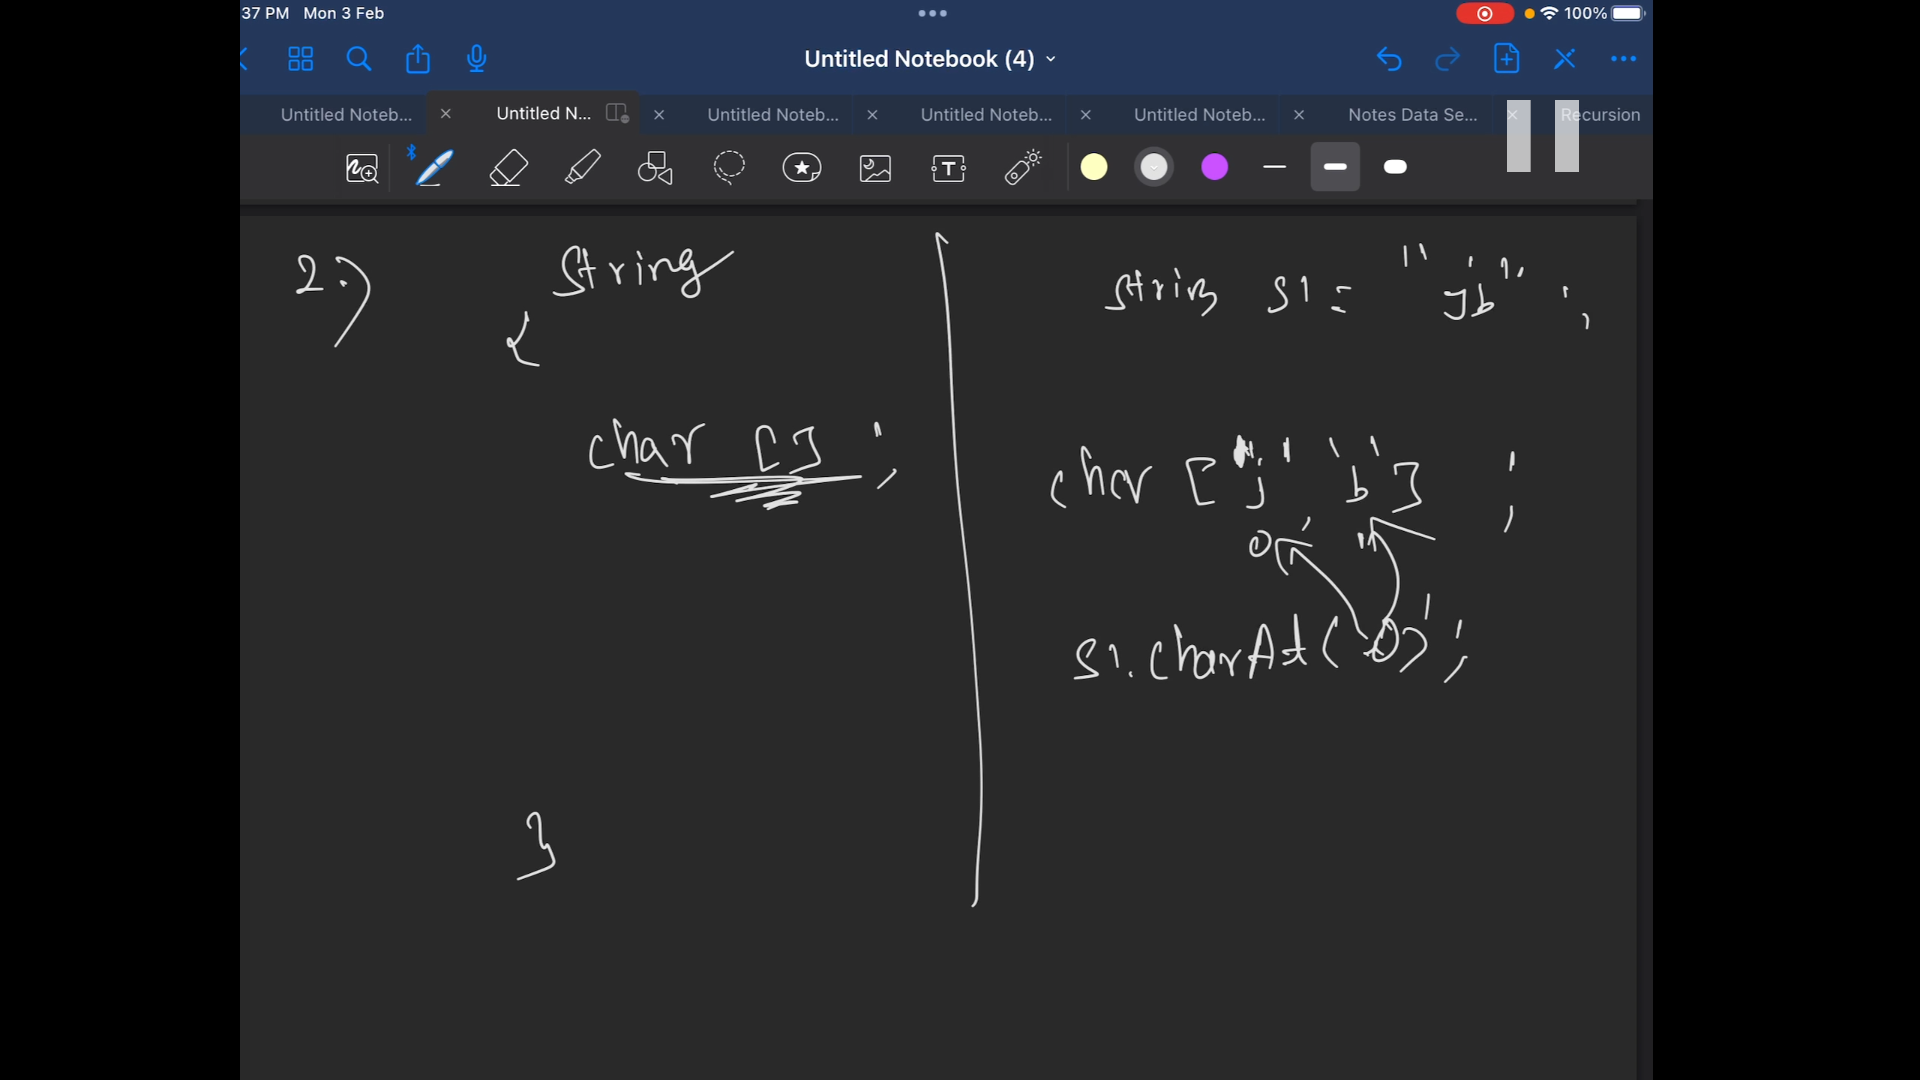 37 PM Mon 3 Feb
100%
Untitled Notebook (4)
Untitled Noteb...
Untitled N...
Untitled Noteb...
Untitled Noteb...
Untitled Noteb...
Notes Data Se...
Recursion
2.)
String
{
char [] ;
}
String s1 = "jb" ;
char ['j' 'b'] ;
0 , 1
s1.charAt(0) ;